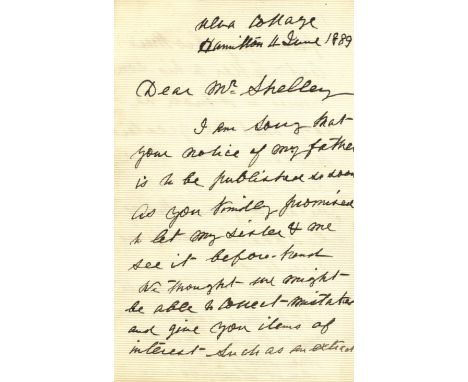 Alva Cottage
Hamilton 4 June 1889
Dear Mr. Shelley
I am sorry that
your notice of my father
is to be published so soon
as you kindly promised
to let my sister & me
see it before-hand
We thought we might
be able to correct mistakes
and give you items of
interest such as an extract